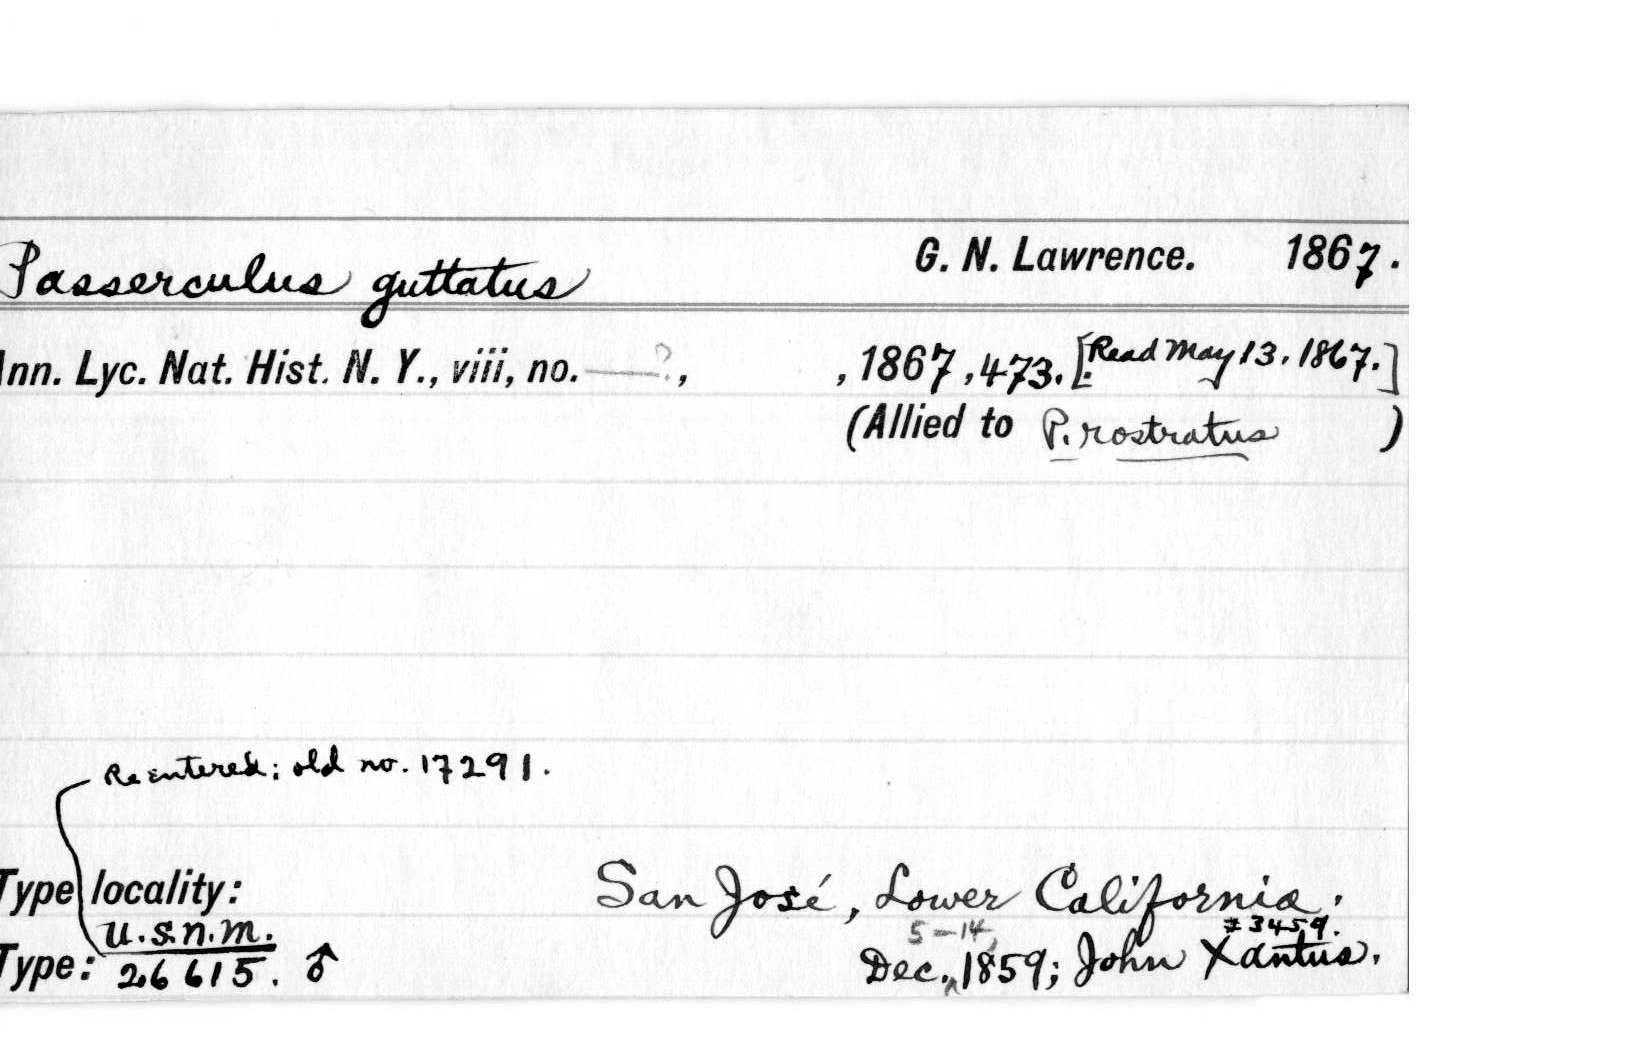 Passerculus guttatus G. N. Lawrence. 1867.
Ann. Lyc. Nat. Hist. N. Y., viii, no. —?, , 1867, 473. [Read May 13, 1867.]
(Allied to P. rostratus )
Reentered; old no. 17291.
Type locality: San José, Lower California.
U.S.N.M. 5-14, #3459.
Type: 26615. ♂ Dec., 1859; John Xantus.